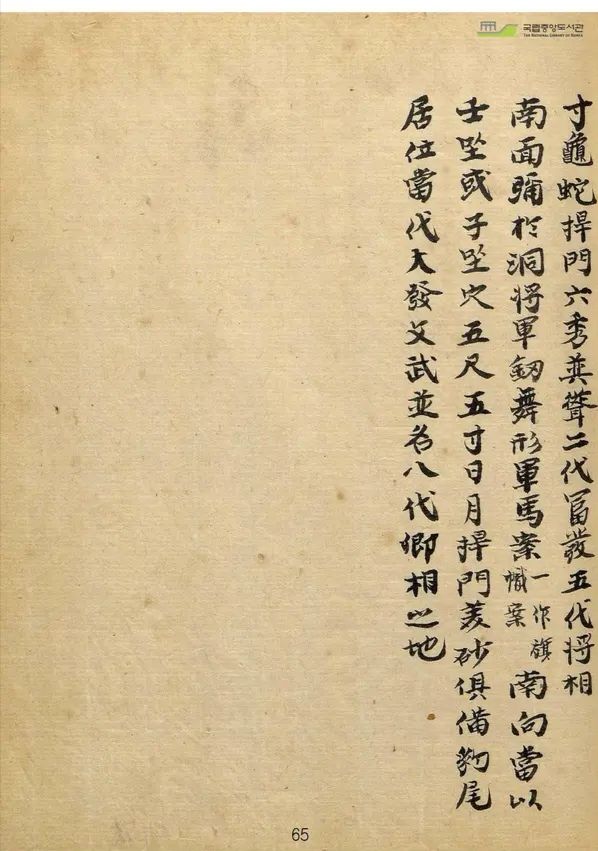 국립중앙도서관
THE NATIONAL LIBRARY OF KOREA
寸龜蛇捍門六秀共聳二代富發五代將相
南面彌於洞將軍劒舞形軍馬案一作旗幟案南向當以
壬坐或子坐穴五尺五寸日月捍門羙砂俱備豹尾
居位當代大發文武並名八代卿相之地
65